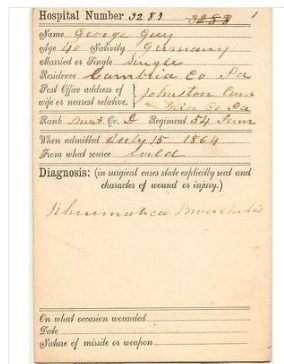 Hospital Number 3283 3283 1
Name George Guy
Age 40 Nativity Germany
Married or Single Single
Residence Cambria Co. Pa
Post Office address of
wife or nearest relative.
Johnston
Co Pa
Rank Co. D Regiment 54 Penn
When admitted July 15 1864
From what source Field
Diagnosis: (in surgical cases state explicitly seat and
character of wound or injury.)
Rheumatica Bronchitis
On what occasion wounded
Date
Nature of missile or weapon